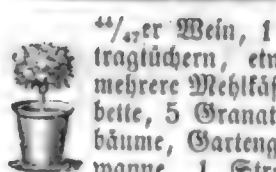 44/47er Wein, 1
tragtüchern, etw
mehrere Mehlkäs
bette, 5 Granat
bäume, Garteng
wanne, 1 Stro